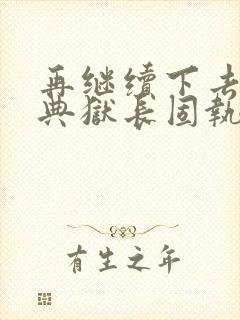 再继续下去
典獄长固執
有生之年